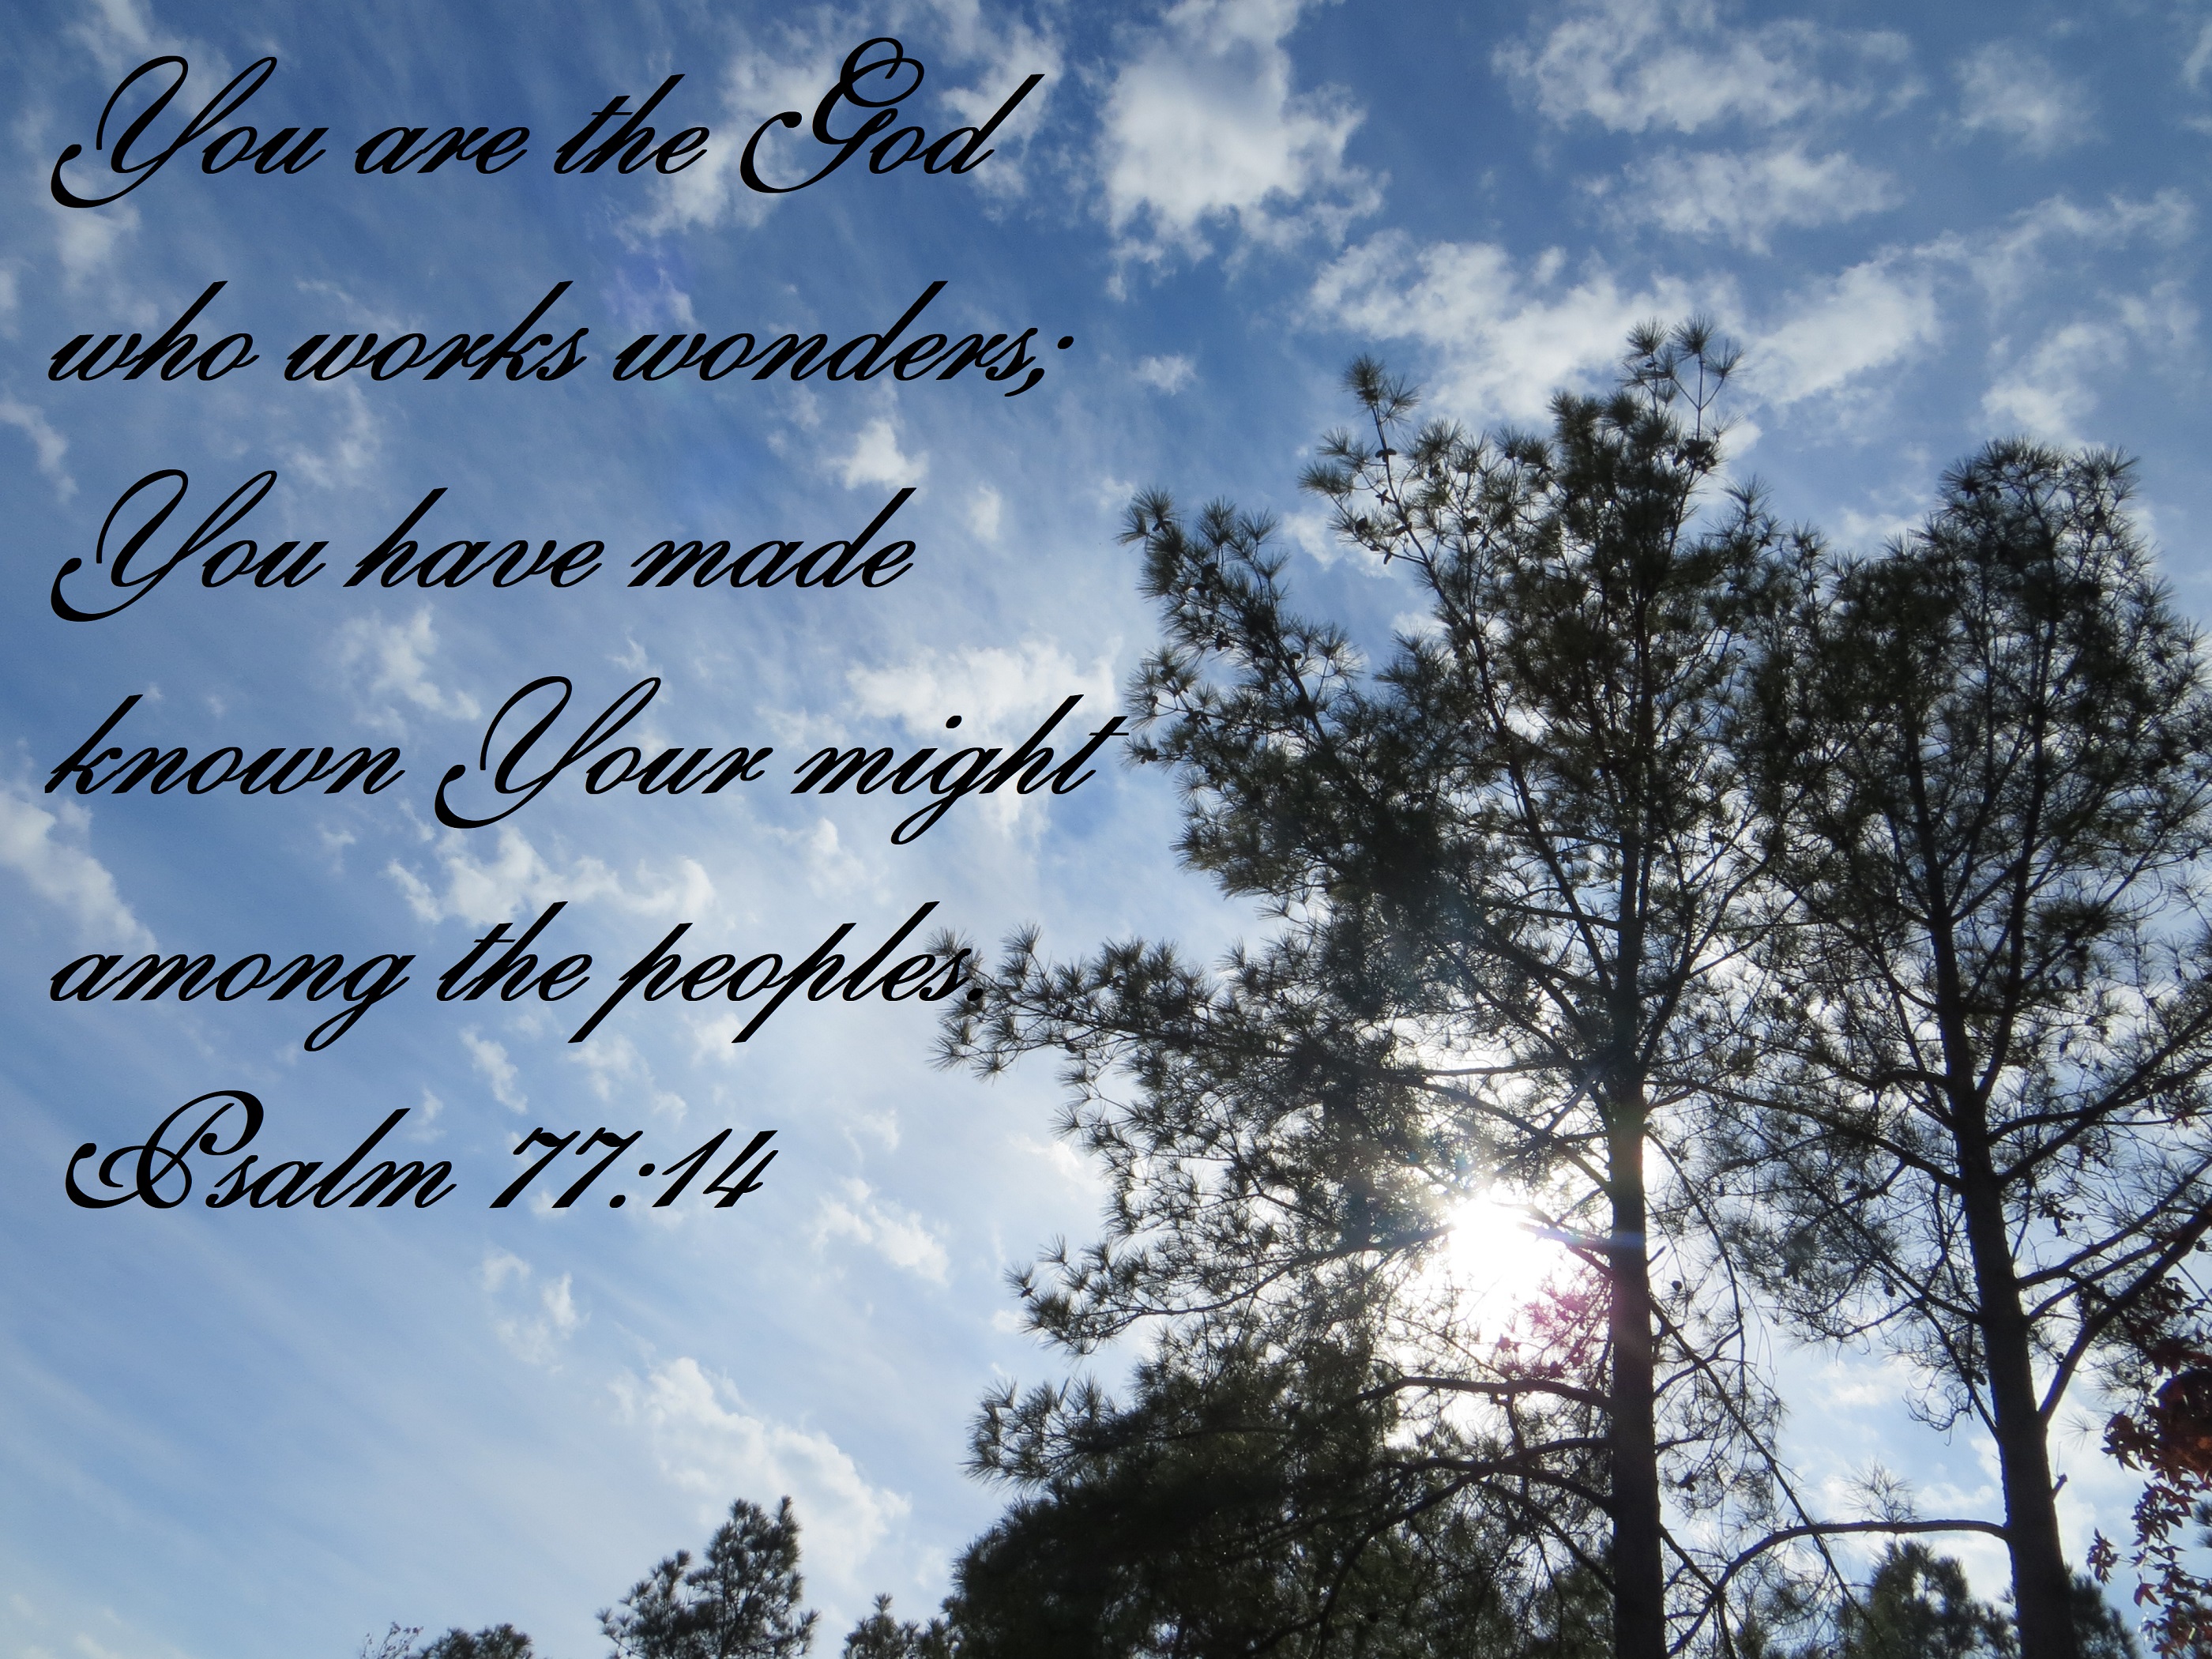 You are the God
who works wonders;
You have made
known Your might
among the peoples.
Psalm 77:14